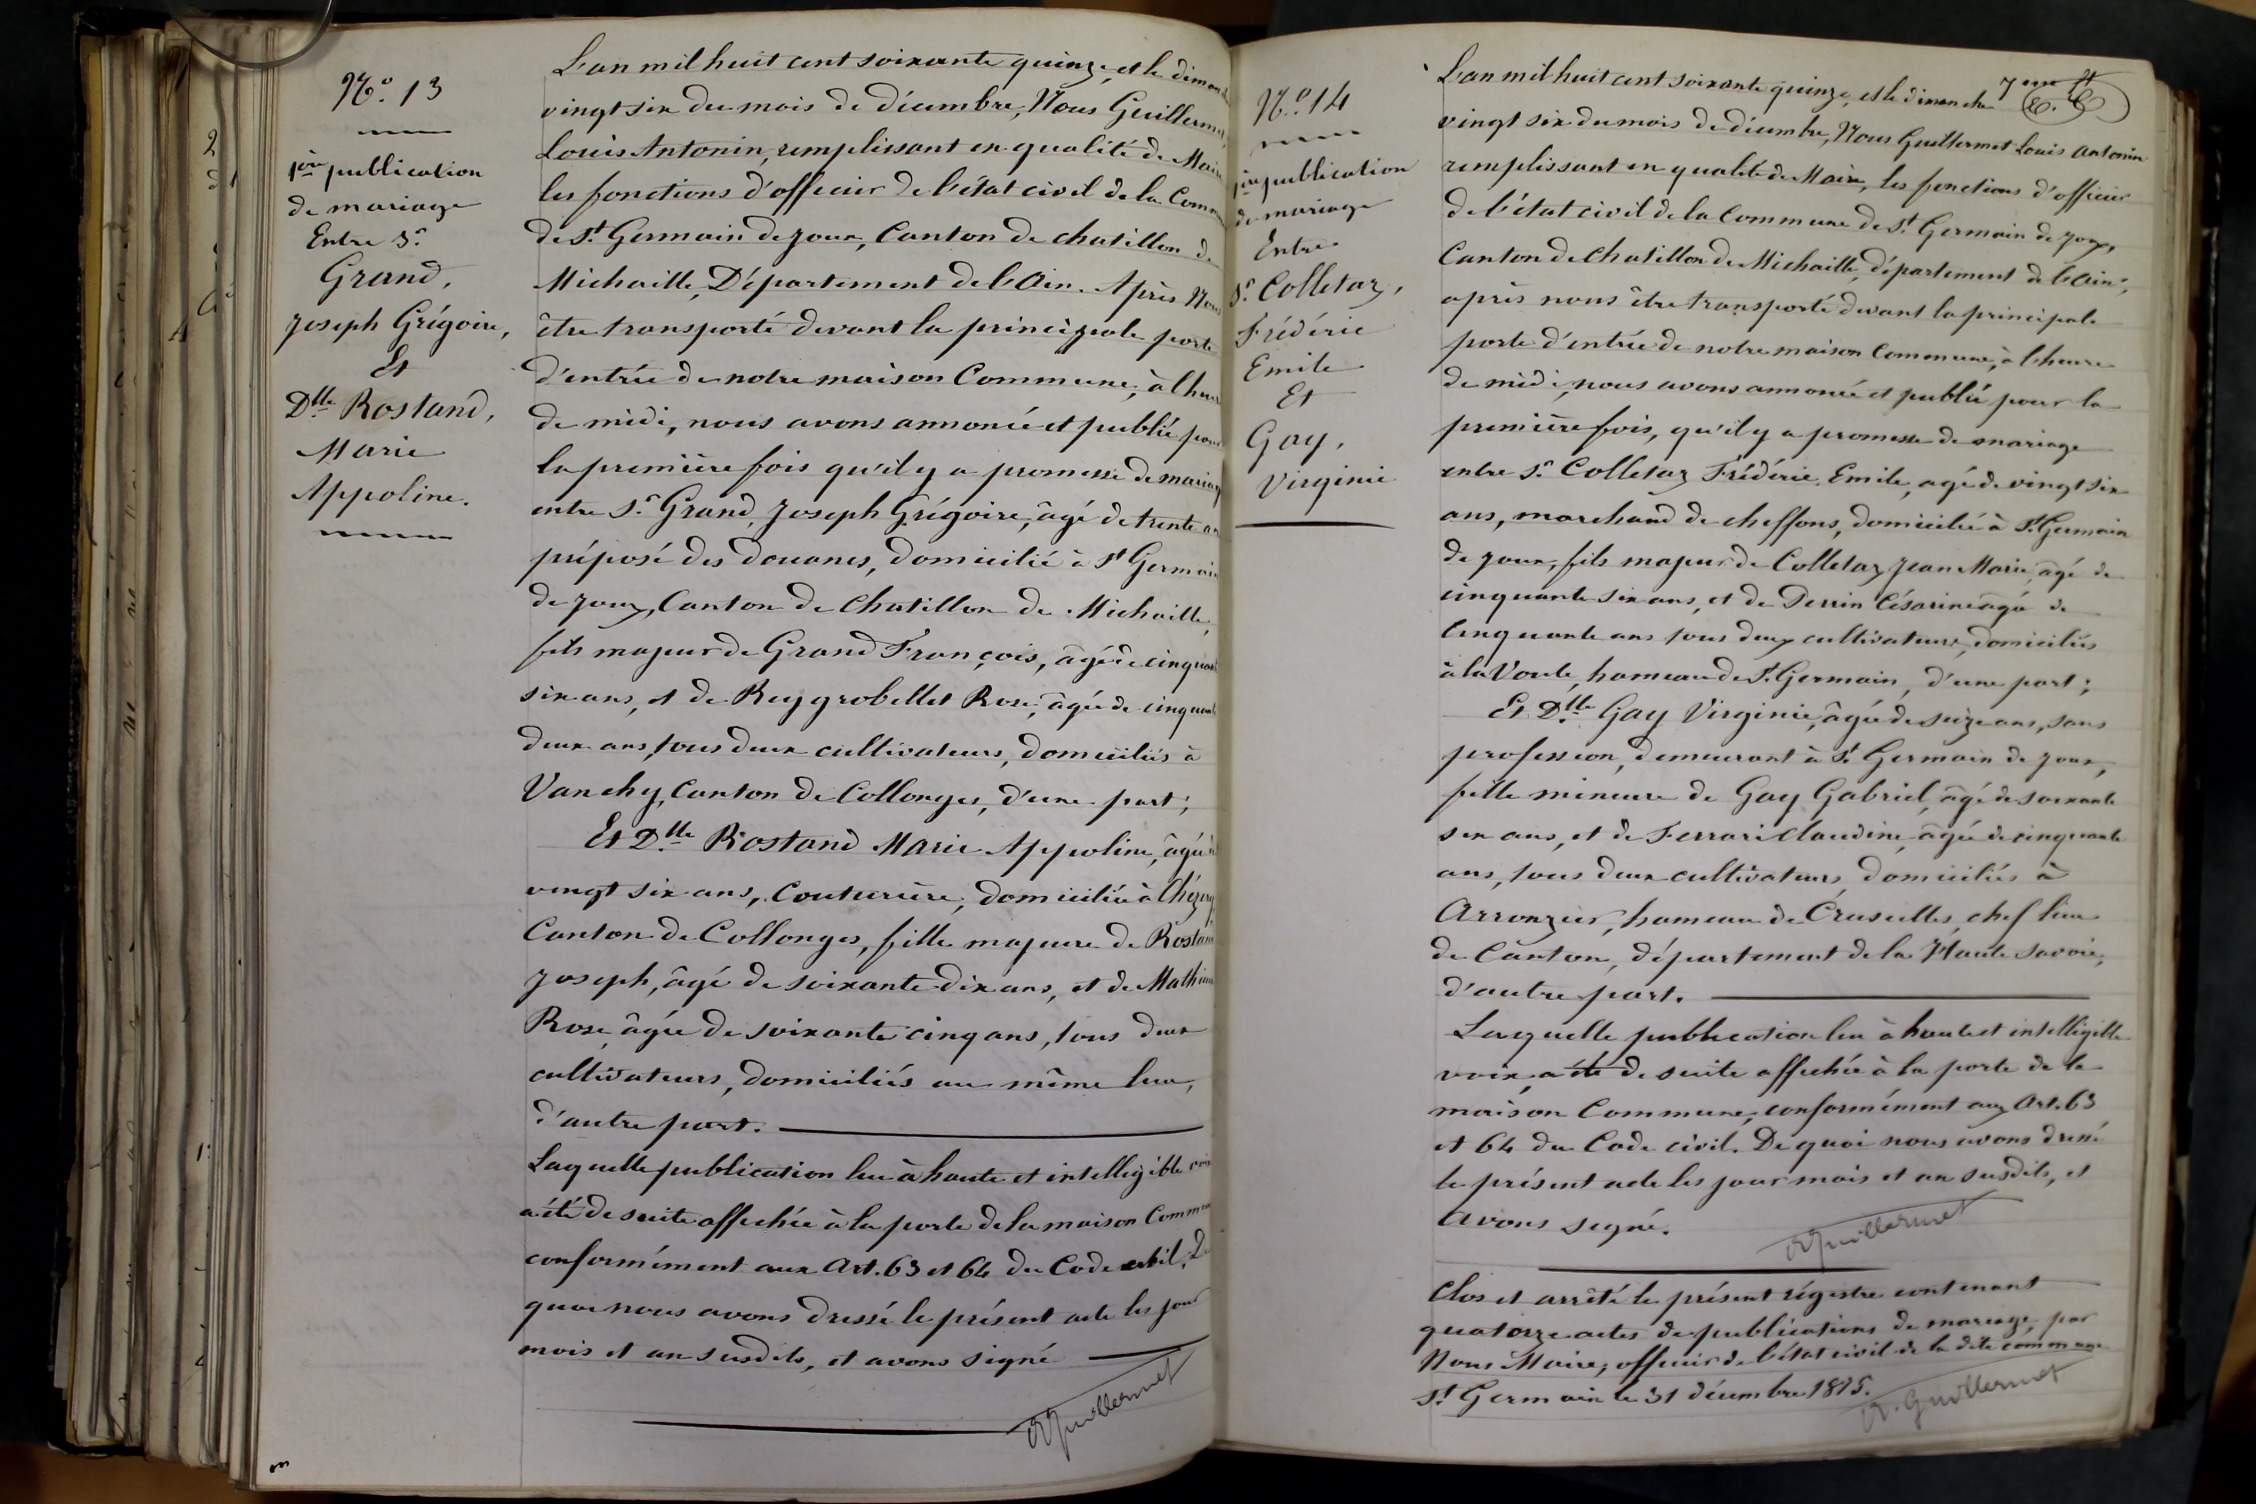 N.o 13
1ère publication
de mariage
Entre Sr
Grand,
Joseph Grégoire,
Et
Dlle Rostand,
Marie
Appoline.
L'an mil huit cent soixante quinze, et le diman
vingt six du mois de décembre, Nous Guillermet
Louis Antonin, remplissant en qualité de Maire
les fonctions d'officier de l'état civil de la Comm
de St Germain de Joux, Canton de Chatillon de
Michaille, Département de l'Ain. Après Nous
être transporté devant la principale porte
d'entrée de notre maison Commune, à l'heure
de midi, nous avons annoncé et publié pour
la première fois qu'il y a promesse de mariag
entre Sr Grand, Joseph Grégoire, âgé de trente an
préposé des douanes, domicilié à St Germain
de Joux, Canton de Chatillon de Michaille,
fils majeur de Grand François, âgé de cinquante
six ans, et de Reygrobellet Rose, âgée de cinquante
deux ans, tous deux cultivateurs, domiciliés à
Vanchy, Canton de Collonges, d'une part;
Et Dlle Rostand Marie Appoline, âgée de
vingt six ans, Couturière, domiciliée à Chézery
Canton de Collonges, fille majeure de Rostan
Joseph, âgé de soixante dix ans, et de Mathieu
Rose, âgée de soixante cinq ans, tous deux
cultivateurs, domiciliés au même lieu,
d'autre part.
Laquelle publication lue à haute et intelligible voix
a été de suite affichée à la porte de la maison Commun
conformément aux Art. 63 et 64 du Code civil. De
quoi nous avons dressé le présent acte les jour
mois et an susdits, et avons signé
Guillermet
N.o 14
1ère publication
de mariage
Entre
Sr Colletaz,
Frédéric
Emile
Et
Gay,
Virginie
7eme
L'an mil huit cent soixante quinze, et le dimanche
vingt six du mois de décembre, Nous Guillermet Louis Antonin
remplissant en qualité de Maire, les fonctions d'officier
de l'état civil de la Commune de St Germain de Joux,
Canton de Chatillon de Michaille, département de l'Ain,
après nous être transporté devant la principale
porte d'entrée de notre maison Commune, à l'heure
de midi, nous avons annoncé et publié pour la
première fois, qu'il y a promesse de mariage
entre Sr Colletaz Frédéric Emile, agé de vingt six
ans, marchand de cheffons, domicilié à St Germain
de Joux, fils majeur de Colletaz Jean Marie, âgé de
cinquante six ans, et de Perrin Césarine âgée de
Cinquante ans tous deux cultivateurs, domiciliés
à la Voute, hameau de St Germain, d'une part;
Et Dlle Gay Virginie, âgée de seize ans, sans
profession, demeurant à St Germain de Joux,
fille mineure de Gay Gabriel, âgé de soixante
six ans, et de Ferrari Claudine, âgée de cinquante
ans, tous deux cultivateurs, domiciliés à
Arronzier, hameau de Cruseilles, chef lieu
de Canton, département de la Haute Savoie,
d'autre part.
Laquelle publication lue à haute et intelligible
voix, a été de suite affichée à la porte de la
maison Commune, conformément aux Art. 63
et 64 du Code civil. De quoi nous avons dressé
le présent acte les jour mois et an susdits, et
avons signé.
Guillermet
Clos et arrêté le présent régistre contenant
quatorze actes de publications de mariage, par
Nous Maire, officier de l'état civil de la dite commune
St Germain le 31 décembre 1875.
Guillermet